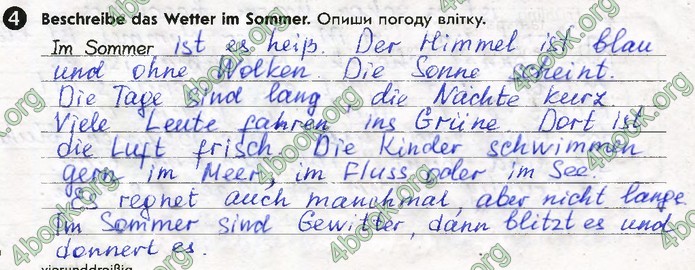 4 Beschreibe das Wetter im Sommer. Опиши погоду влітку.
Im Sommer ist es heiß. Der Himmel ist blau
und ohne Wolken. Die Sonne scheint.
Die Tage sind lang, die Nächte kurz.
Viele Leute fahren ins Grüne. Dort ist
die Luft frisch. Die Kinder schwimmen
gern im Meer, im Fluss oder im See.
Es regnet auch manchmal, aber nicht lange.
Im Sommer sind Gewitter, dann blitzt es und
donnert es.
vierunddreißig